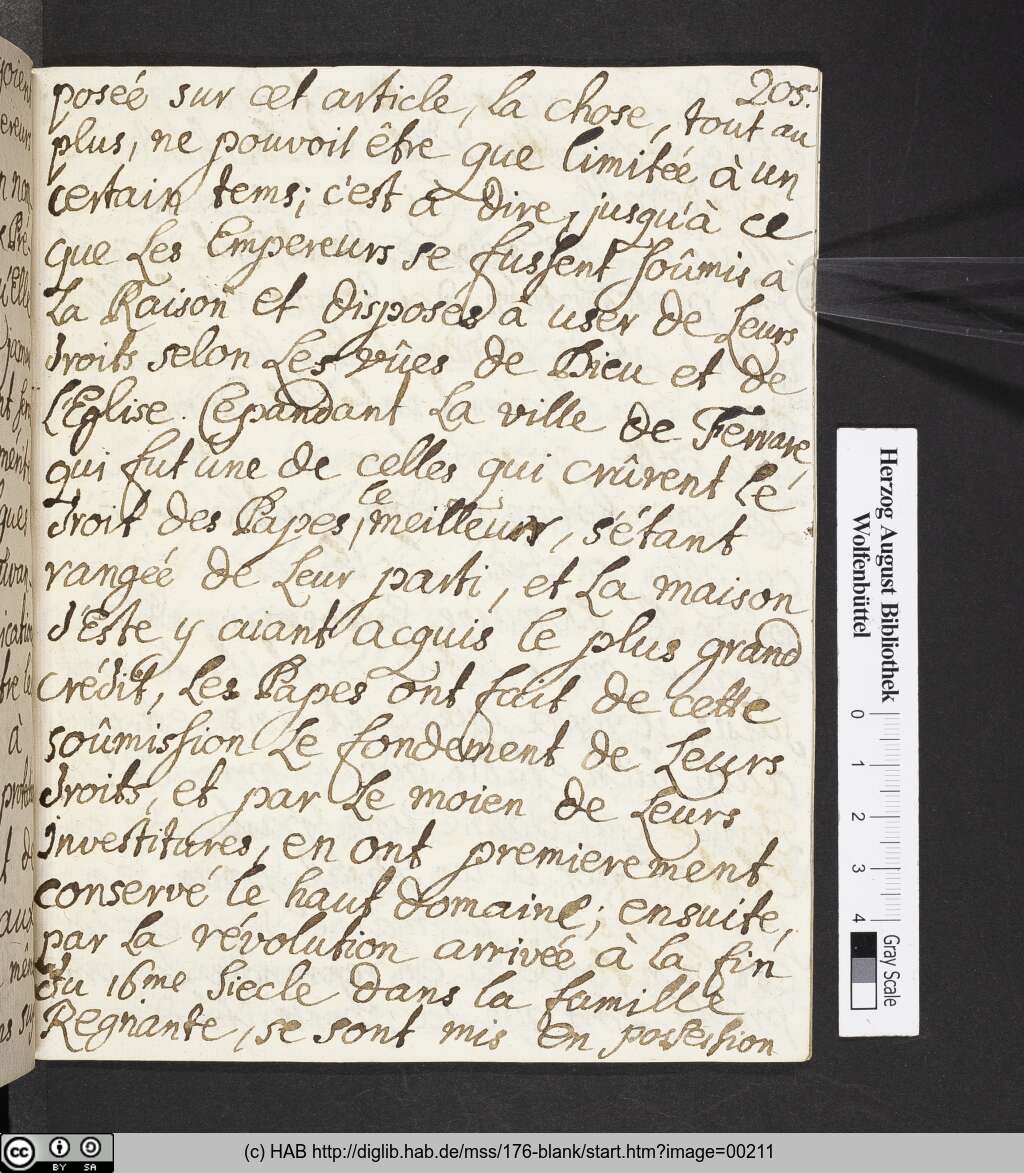 205.
posée sur cet article, la chose, tout au
plus, ne pouvoit être que limitée à un
certain tems; c'est à dire, jusqu'à ce
que Les Empereurs se fussent soûmis à
La Raison et disposés à user de Leurs
droits selon Les vûes de Dieu et de
l'Eglise. Cepandant La ville de Ferrare,
qui fut une de celles qui crûrent le
droit des Papes, le meilleur, s'étant
rangée de Leur parti, et La maison
d'Este y aiant acquis le plus grand
crédit, Les Papes ont fait de cette
soûmission Le fondement de Leurs
droits, et par Le moien de Leurs
investitures, en ont premierement
conservé le haut domaine; ensuite,
par La révolution arrivée à la fin
du 16.me Siecle dans la famille
Regnante, se sont mis en possession
Herzog August Bibliothek
Wolfenbüttel
0 1 2 3 4
Gray Scale
(c) HAB http://diglib.hab.de/mss/176-blank/start.htm?image=00211
cc BY SA